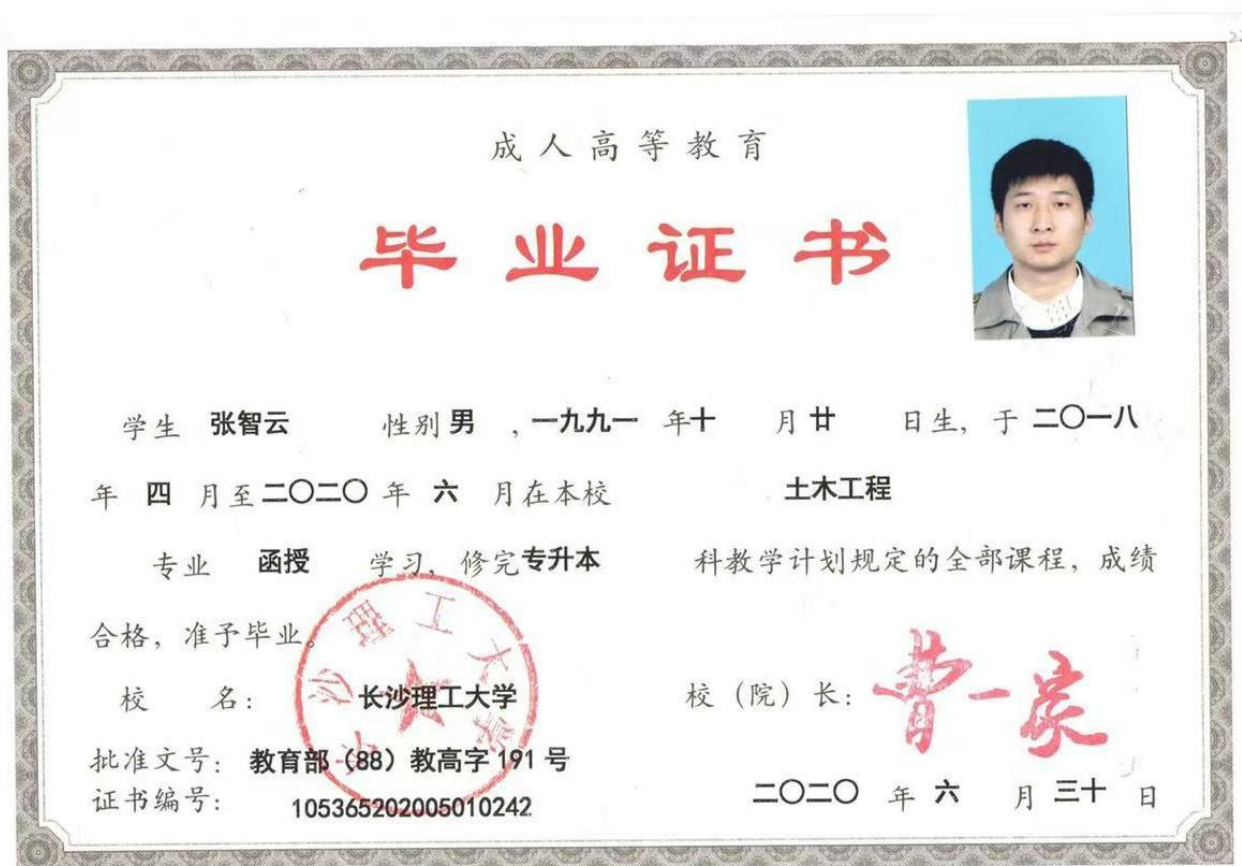 成人高等教育
毕业证书
学生 张智云 性别 男 ，一九九一 年 十 月 廿 日生，于 二〇一八
年 四 月至 二〇二〇 年 六 月在本校 土木工程
专业 函授 学习，修完 专升本 科教学计划规定的全部课程，成绩
合格，准予毕业。
长沙理工大学
校 名： 长沙理工大学
校（院）长： 曹一家
批准文号： 教育部（88）教高字 191 号
证书编号： 105365202005010242
二〇二〇 年 六 月 三十 日